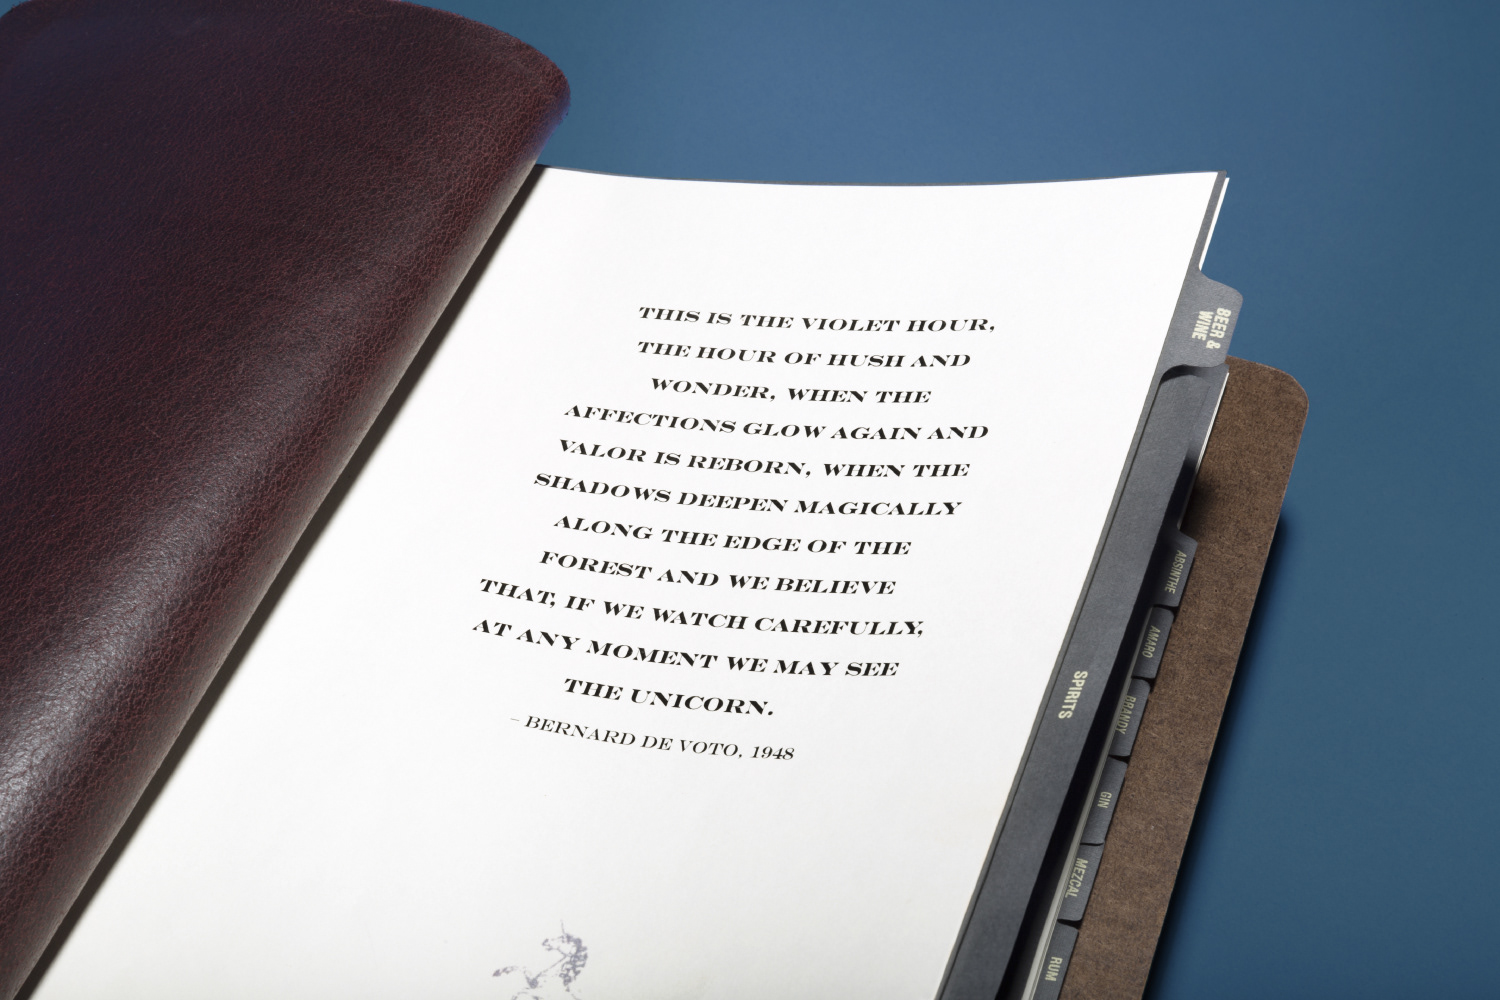 THIS IS THE VIOLET HOUR,
THE HOUR OF HUSH AND
WONDER, WHEN THE
AFFECTIONS GLOW AGAIN AND
VALOR IS REBORN, WHEN THE
SHADOWS DEEPEN MAGICALLY
ALONG THE EDGE OF THE
FOREST AND WE BELIEVE
THAT, IF WE WATCH CAREFULLY,
AT ANY MOMENT WE MAY SEE
THE UNICORN.
– BERNARD DE VOTO, 1948
BEER &
WINE
SPIRITS
ABSINTHE
AMARO
BRANDY
GIN
MEZCAL
RUM